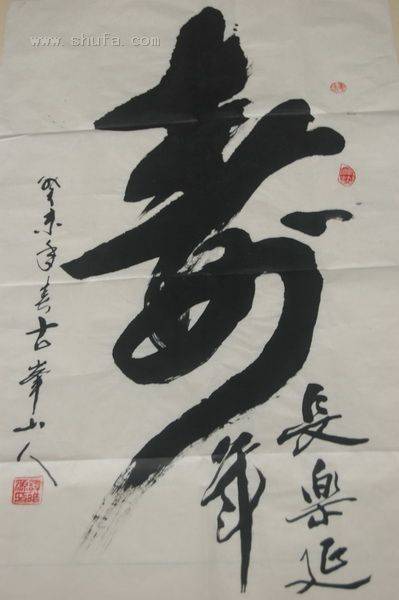 www.shufa.com
寿
長樂延
年
癸未年春古峯山人